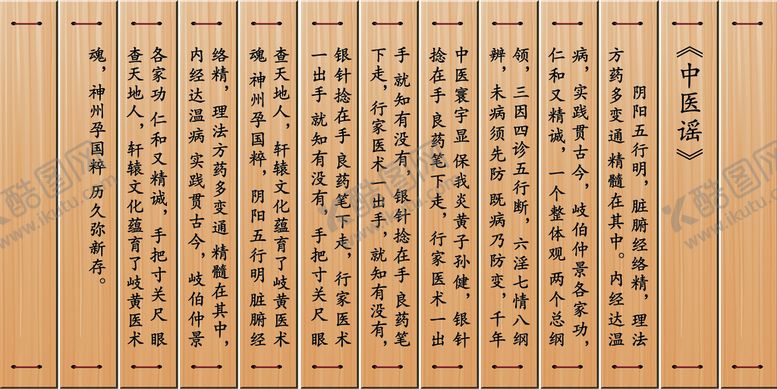 《中医谣》
阴阳五行明，脏腑经络精，理法
方药多变通 精髓在其中。内经达温
病，实践贯古今，岐伯仲景各家功，
仁和又精诚，一个整体观 两个总纲
领，三因四诊五行断，六淫七情八纲
辨，未病须先防 既病乃防变，千年
中医寰宇显 保我炎黄子孙健，银针
捻在手 良药笔下走，行家医术一出
手 就知有没有，银针捻在手 良药笔
下走，行家医术一出手，就知有没有，
银针捻在手 良药笔下走，行家医术
一出手 就知有没有 手把寸关尺 眼
查天地人，轩辕文化蕴育了岐黄医术
魂 神州孕国粹，阴阳五行明 脏腑经
络精，理法方药多变通 精髓在其中，
内经达温病 实践贯古今，岐伯仲景
各家功 仁和又精诚，手把寸关尺 眼
查天地人，轩辕文化蕴育了岐黄医术
魂，神州孕国粹 历久弥新存。
酷图网
www.ikutu.com